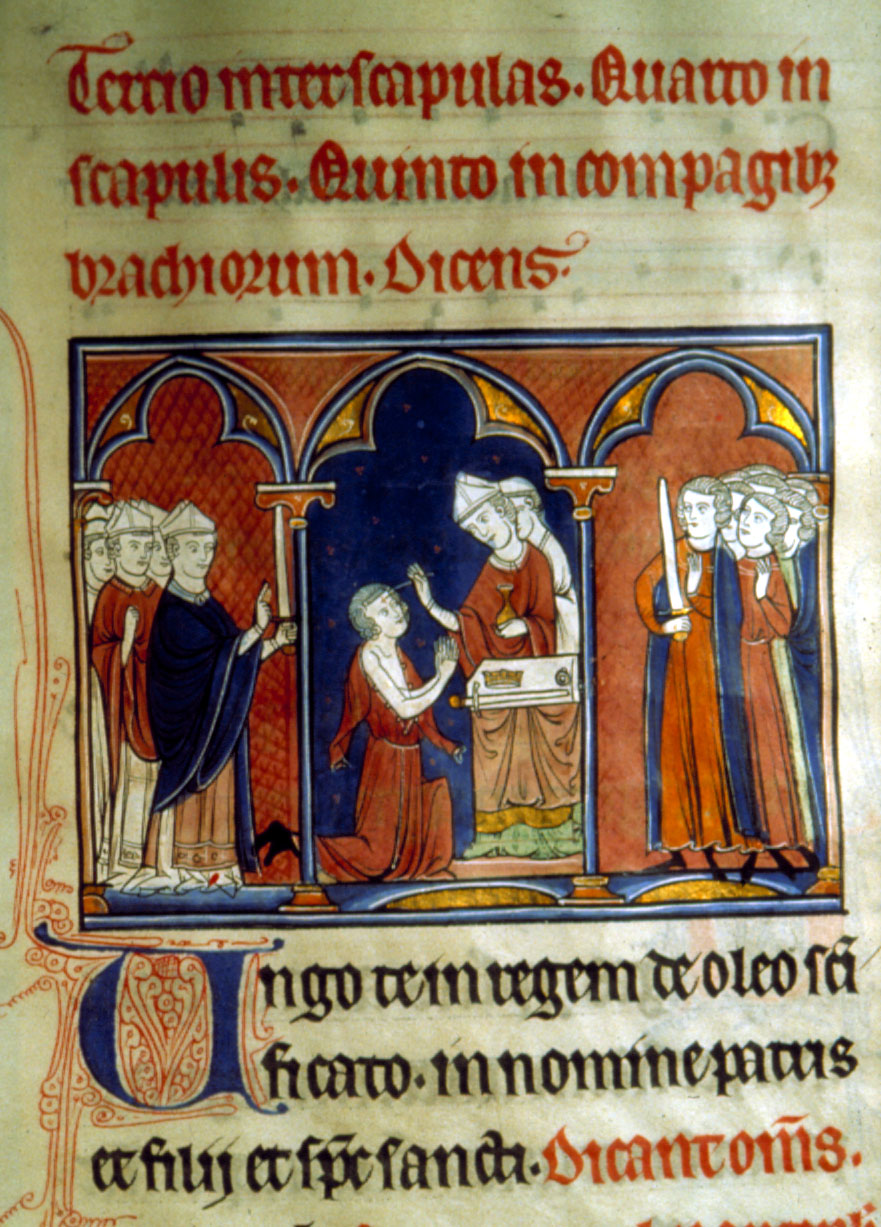 Tercio inter scapulas. Quarto in
scapulis. Quinto in compagibꝫ
brachiorum. Dicens.
Ungo te in regem de oleo sc̄i
ficato. in nomine patris
et filij et sp̄c sancti. Dicant om̄s.